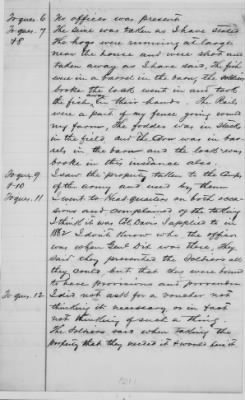 To ques. 6 No officer was present
To ques. 7 The wine was taken as I have stated
+8 The hogs were running at large
near the house and were shot and
taken away as I have said, The fish
were in a barrel in the barn, the soldiers
broke the lock went in and took
the fish away in their hands. The Rails
were a part of my fence going round
my farm, the fodder was in stack
in the field and the Corn was in bar-
rels in the barn and the lock was
broke in this instance also.
To ques. 9 I saw the property taken to the Camp
+10 of the army and used by them
To ques. 11 I went to Head quarters on both occa-
sions and complained of the taking
I think it was Col Davis I applied to in
1862 I don't know who the officer
was when Genl was there, they
said they prevented the Soldiers all
they could but that they were bound
to have provisions and provender
To ques. 12 I did not ask for a voucher not
thinking it necessary or in fact
not thinking of such a thing.
The Soldiers said when taking the
property that they needed it & would have it